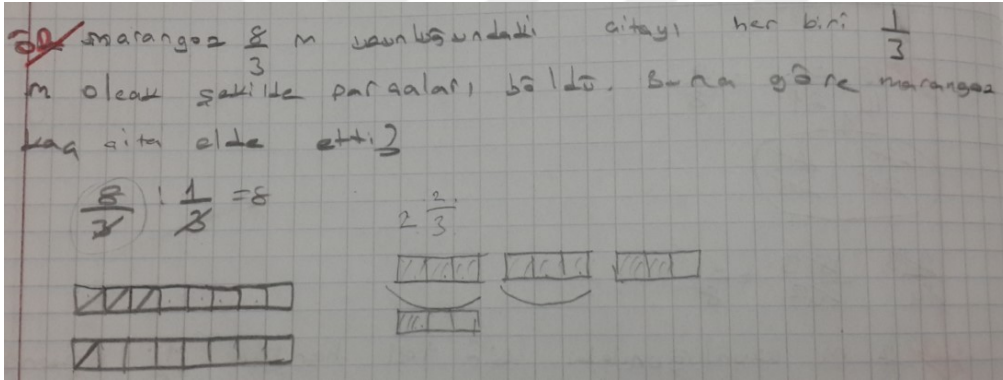 marangoz 8/3 m uzunluğundaki çıtayı her biri 1/3
m olcak şekilde parçaları böldü. Buna göre marangoz
kaç çıta elde etti?
8/3 : 1/3 = 8
2 2/3